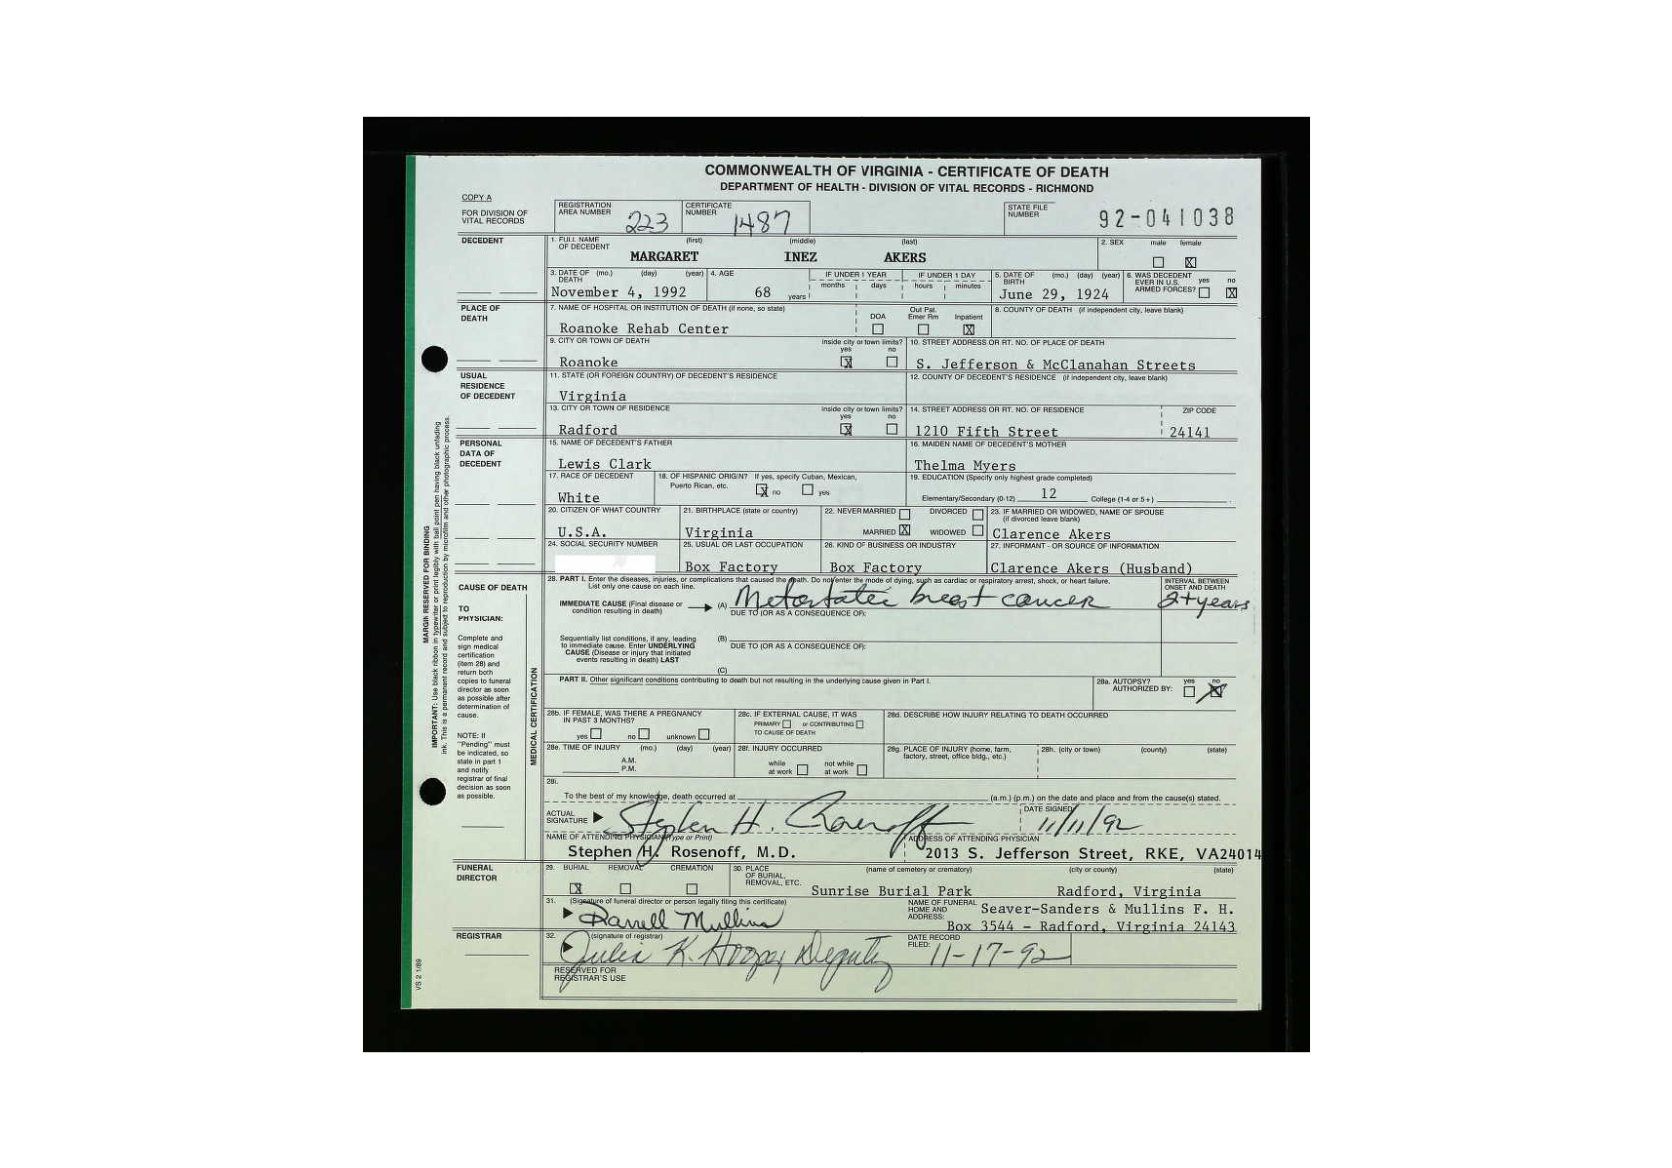 COMMONWEALTH OF VIRGINIA - CERTIFICATE OF DEATH
DEPARTMENT OF HEALTH - DIVISION OF VITAL RECORDS - RICHMOND
COPY A
FOR DIVISION OF VITAL RECORDS
REGISTRATION AREA NUMBER 223 CERTIFICATE NUMBER 1487 STATE FILE NUMBER 92-041038
DECEDENT
1. FULL NAME OF DECEDENT (first) (middle) (last) 2. SEX male female
MARGARET INEZ AKERS X
3. DATE OF DEATH (mo.) (day) (year) 4. AGE IF UNDER 1 YEAR IF UNDER 1 DAY 5. DATE OF BIRTH (mo.) (day) (year) 6. WAS DECEDENT EVER IN U.S. ARMED FORCES? yes no
months days hours minutes
November 4, 1992 68 years June 29, 1924 X
PLACE OF DEATH
7. NAME OF HOSPITAL OR INSTITUTION OF DEATH (if none, so state) DOA Out Pat. Emer Rm Inpatient 8. COUNTY OF DEATH (if independent city, leave blank)
Roanoke Rehab Center X
9. CITY OR TOWN OF DEATH inside city or town limits? yes no 10. STREET ADDRESS OR RT. NO. OF PLACE OF DEATH
Roanoke X S. Jefferson & McClanahan Streets
USUAL RESIDENCE OF DECEDENT
11. STATE (OR FOREIGN COUNTRY) OF DECEDENT'S RESIDENCE 12. COUNTY OF DECEDENT'S RESIDENCE (if independent city, leave blank)
Virginia
13. CITY OR TOWN OF RESIDENCE inside city or town limits? yes no 14. STREET ADDRESS OR RT. NO. OF RESIDENCE ZIP CODE
Radford X 1210 Fifth Street 24141
PERSONAL DATA OF DECEDENT
15. NAME OF DECEDENT'S FATHER 16. MAIDEN NAME OF DECEDENT'S MOTHER
Lewis Clark Thelma Myers
17. RACE OF DECEDENT 18. OF HISPANIC ORIGIN? If yes, specify Cuban, Mexican, Puerto Rican, etc. X no yes 19. EDUCATION (Specify only highest grade completed)
White Elementary/Secondary (0-12) 12 College (1-4 or 5+)
20. CITIZEN OF WHAT COUNTRY 21. BIRTHPLACE (state or country) 22. NEVER MARRIED DIVORCED 23. IF MARRIED OR WIDOWED, NAME OF SPOUSE (if divorced leave blank)
U.S.A. Virginia MARRIED X WIDOWED Clarence Akers
24. SOCIAL SECURITY NUMBER 25. USUAL OR LAST OCCUPATION 26. KIND OF BUSINESS OR INDUSTRY 27. INFORMANT - OR SOURCE OF INFORMATION
Box Factory Box Factory Clarence Akers (Husband)
CAUSE OF DEATH
28. PART I. Enter the diseases, injuries, or complications that caused the death. Do not enter the mode of dying, such as cardiac or respiratory arrest, shock, or heart failure. List only one cause on each line. INTERVAL BETWEEN ONSET AND DEATH
IMMEDIATE CAUSE (Final disease or condition resulting in death) (A) Metastatic breast cancer 2+years
DUE TO (OR AS A CONSEQUENCE OF):
Sequentially list conditions, if any, leading to immediate cause. Enter UNDERLYING CAUSE (Disease or injury that initiated events resulting in death) LAST
(B)
DUE TO (OR AS A CONSEQUENCE OF):
(C)
TO PHYSICIAN:
Complete and sign medical certification (item 28) and return both copies to funeral director as soon as possible after determination of cause.
NOTE: If "Pending" must be indicated, so state in part 1 and notify registrar of final decision as soon as possible.
MEDICAL CERTIFICATION
PART II. Other significant conditions contributing to death but not resulting in the underlying cause given in Part I. 28a. AUTOPSY? AUTHORIZED BY: yes no X
28b. IF FEMALE, WAS THERE A PREGNANCY IN PAST 3 MONTHS? yes no unknown 28c. IF EXTERNAL CAUSE, IT WAS PRIMARY or CONTRIBUTING TO CAUSE OF DEATH 28d. DESCRIBE HOW INJURY RELATING TO DEATH OCCURRED
28e. TIME OF INJURY (mo.) (day) (year) A.M. P.M. 28f. INJURY OCCURRED while at work not while at work 28g. PLACE OF INJURY (home, farm, factory, street, office bldg., etc.) 28h. (city or town) (county) (state)
28i.
To the best of my knowledge, death occurred at (a.m.) (p.m.) on the date and place and from the cause(s) stated.
ACTUAL SIGNATURE Stephen H. Rosenoff DATE SIGNED 11/11/92
NAME OF ATTENDING PHYSICIAN (Type or Print) ADDRESS OF ATTENDING PHYSICIAN
Stephen H. Rosenoff, M.D. 2013 S. Jefferson Street, RKE, VA24014
FUNERAL DIRECTOR
29. BURIAL REMOVAL CREMATION 30. PLACE OF BURIAL, REMOVAL, ETC. (name of cemetery or crematory) (city or county) (state)
X Sunrise Burial Park Radford, Virginia
31. (Signature of funeral director or person legally filing this certificate) NAME OF FUNERAL HOME AND ADDRESS: Seaver-Sanders & Mullins F. H.
Darrell Mullins Box 3544 - Radford, Virginia 24143
REGISTRAR
32. (signature of registrar) DATE RECORD FILED: 11-17-92
Julia K. Deputy
RESERVED FOR REGISTRAR'S USE
MARGIN RESERVED FOR BINDING
IMPORTANT: Use black ribbon in typewriter or print legibly with ball point pen having black unfading
ink. This is a permanent record and subject to reproduction by microfilm and other photographic process.
VS 2 1/89